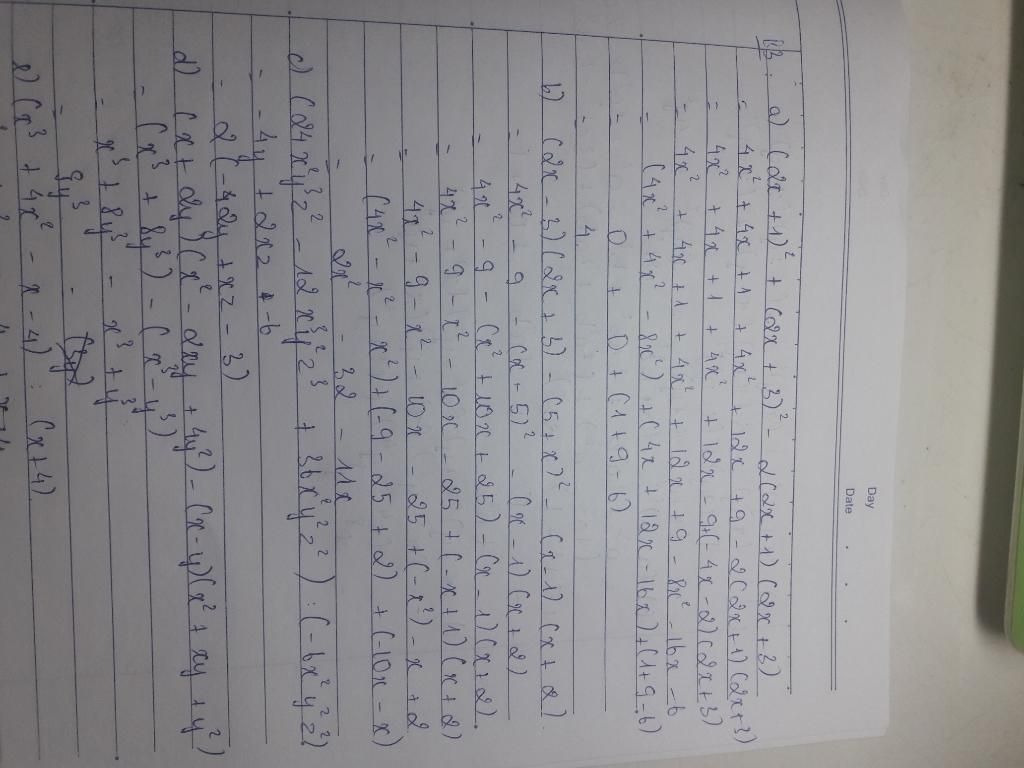 Day
Date
B3: a) (2x + 1)² + (2x + 3)² - 2(2x + 1) (2x + 3)
= 4x² + 4x + 1 + 4x² + 12x + 9 - 2(2x+1)(2x+3)
= 4x² + 4x + 1 + 4x² + 12x - 9(-4x - 2)(2x+3)
= 4x² + 4x + 1 + 4x² + 12x + 9 - 8x² - 16x - 6
= (4x² + 4x² - 8x²) + (4x + 12x - 16x) + (1+9-6)
= 0 + 0 + (1+9-6)
= 4
b) (2x - 3)(2x + 3) - (5 + x)² - (x - 1) (x + 2)
= 4x² - 9 - (x + 5)² - (x - 1)(x + 2)
= 4x² - 9 - (x² + 10x + 25) - (x - 1)(x + 2)
= 4x² - 9 - x² - 10x - 25 + (-x + 1)(x + 2)
= 4x² - 9 - x² - 10x - 25 + (-x²) - x + 2
= (4x² - x² - x²) + (-9 - 25 + 2) + (-10x - x)
= 2x² - 32 - 11x
c) (24x²y³z² - 12x³y²z³ + 36x²y²z²) : (-6x²y²z²)
= -4y + 2xz - 6
= 2(-2y + xz - 3)
d) (x + 2y)(x² - 2xy + 4y²) - (x - y)(x² + xy + y²)
= (x³ + 8y³) - (x³ - y³)
= x³ + 8y³ - x³ + y³
= 9y³
e) (x³ + 4x² - x - 4) : (x + 4)